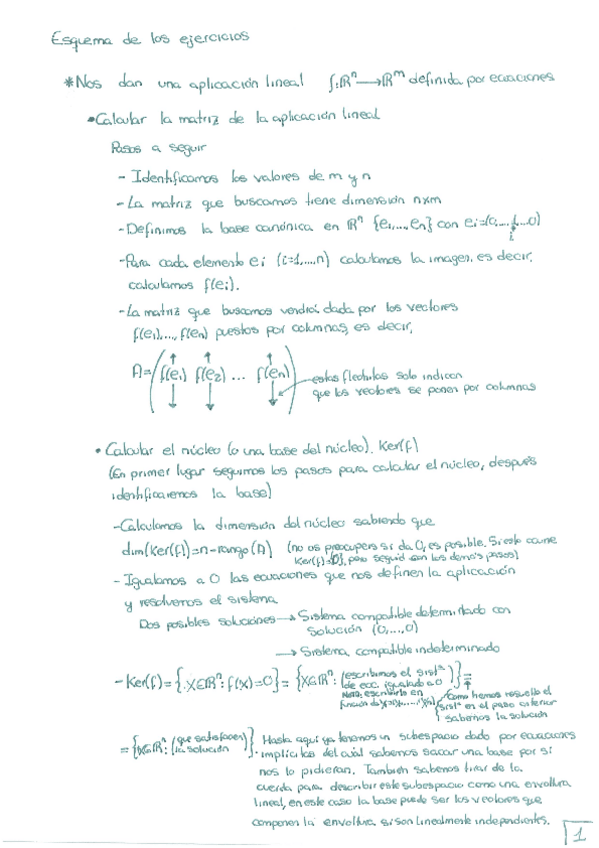 Esquema de los ejercicios
*Nos dan una aplicación lineal f:ℝⁿ→ℝᵐ definida por ecuaciones
•Calcular la matriz de la aplicación lineal
Pasos a seguir
- Identificamos los valores de m y n
- La matriz que buscamos tiene dimensión nxm
- Definimos la base canónica en ℝⁿ {e₁,...,eₙ} con eᵢ=(0,...,1,...0)
i
-Para cada elemento eᵢ (i=1,...,n) calculamos la imagen, es decir,
calculamos f(eᵢ).
-La matriz que buscamos vendrá dada por los vectores
f(e₁),..., f(eₙ) puestos por columnas, es decir,
A=(f(e₁) f(e₂) ... f(eₙ)) estas flechitas solo indican
que los vectores se ponen por columnas
• Calcular el núcleo (o una base del núcleo). Ker(f)
(En primer lugar seguimos los pasos para calcular el núcleo, después
identificaremos la base)
-Calculamos la dimensión del núcleo sabiendo que
dim(Ker(f))=n-rango(A) (no os preocupéis si da 0, es posible. Si esto ocurre
Ker(f)={0}, pero seguid con los demás pasos)
- Igualamos a 0 las ecuaciones que nos definen la aplicación
y resolvemos el sistema
Dos posibles soluciones → Sistema compatible determinado con
solución (0,...,0)
→ Sistema compatible indeterminado
- Ker(f)={x∈ℝⁿ: f(x)=0} = {x∈ℝⁿ: (escribimos el sistª
de ecc. igualado a 0)} =
Nota: escribirlo en
función de
Como hemos resuelto el
sistª en el paso anterior
sabemos la solución
={x∈ℝⁿ: (que satisfacen
la solución)}. Hasta aquí ya tenemos un subespacio dado por ecuaciones
implícitas del cual sabemos sacar una base por si
nos lo pidieran. También sabemos tirar de la
cuerda para describir este subespacio como una envoltura
lineal, en este caso la base puede ser los vectores que
componen la envoltura si son linealmente independientes.
1